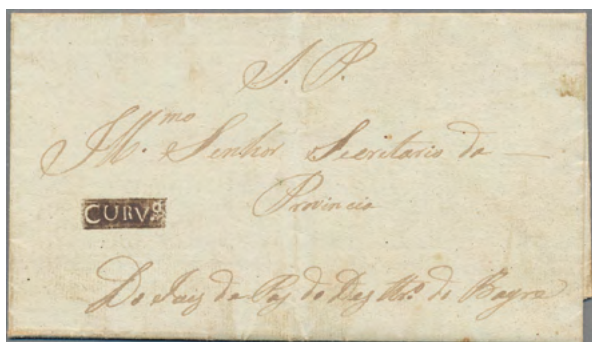 S. P.
Ill.mo Senhor Secretario da
Provincia
CURV
Do Juiz de Paz do do Bagre